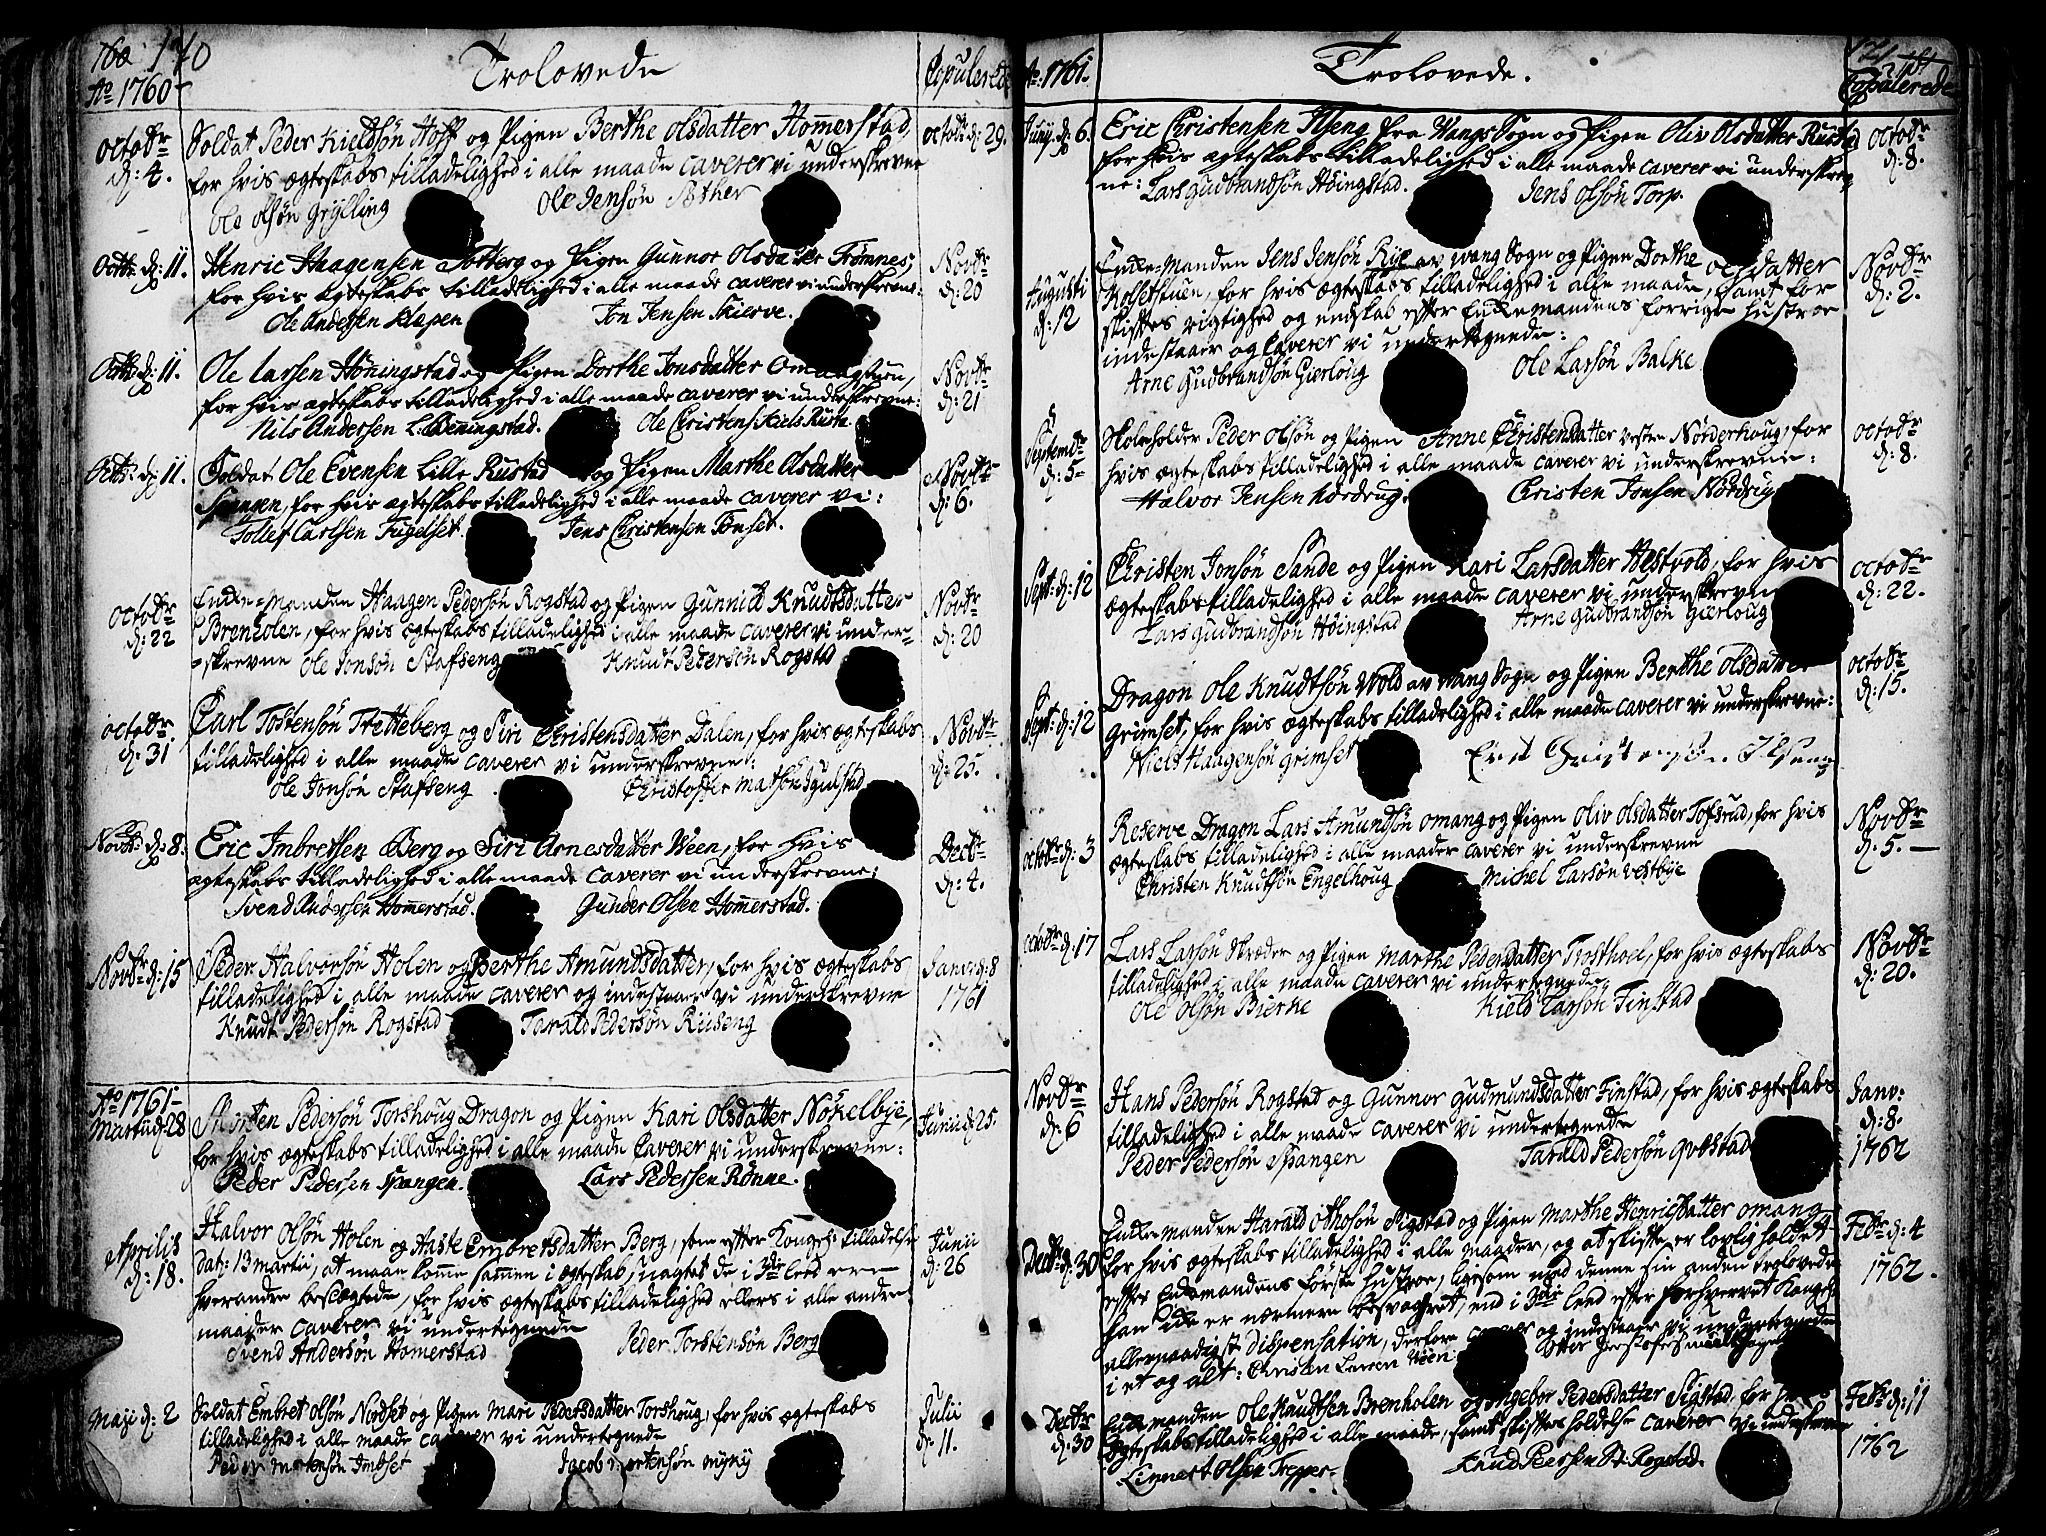 160 170
Ao 1760
Trolovede
Copulerede
octobr d: 4.
Soldat Peder Kieldsön Hoff og Pigen Berthe Olsdatter Homerstad,
for hvis ægteskabs tilladelighed i alle maade caverer vi underskrevne
Ole Olsön Grylling
Ole Jensön Sæther
octob: d: 29.
Octbr d: 11.
Henric Haagensen Totberg og Pigen Gunnor Olsdatter Frømnes,
for hvis ægteskabs tilladelighed i alle maade caverer vi underskrevne:
Ole Andersen Klæpen
Jon Jensen Skierve.
Novbr d: 20
Octbr d: 11.
Ole Larsen Høningstad og Pigen Dorthe Jonsdatter
for hvis ægteskabs tilladelighed i alle maade caverer vi underskrevne:
Nils Andersen L. Benningstad.
Ole Christens: Niels Rusta
Novbr d: 21
Octbr d: 11.
Soldat Ole Evensen Lille Rustad og Pigen Marthe Olsdatter
Spangen, for hvis ægteskabs tilladelighed i alle maade caverer vi:
Tollef Carlsen Fugelset.
Jens Christensen Tønset.
Novbr d: 6.
octobr d: 22
Enke-Manden Haagen Pedersön Rogstad og Pigen Gunnild Knudtsdatter
Brenholen, for hvis ægteskabs tilladelighed i alle maade caverer vi under-
-skrevne Ole Jonsön Stafseng
Knudt Pedersön Rogstad
Novbr d: 20
octobr d: 31
Carl Tostensön Tretteberg og Siri Christensdatter Dalen, for hvis ægteskabs
tilladelighed i alle maade caverer vi underskrevne:
Ole Jonsön Stafseng
Christoffer Matsön Igulstad
Novbr d: 25.
Novbr d: 8.
Eric Imbretsen Berg og Siri Arnesdatter Ween, for hvis
ægteskabs tilladelighed i alle maade caverer vi underskrevne:
Svend Andersen Homerstad.
Gunder Olsen Homerstad.
Decbr d: 4.
Novbr d: 15
Peder Halvorsön Holen og Berthe Amundsdatter, for hvis ægteskabs
tilladelighed i alle maade caverer og indestaaer vi underskrevne
Knudt Pedersön Rogstad
Tarald Pedersön Riiseng
Janv: d: 8 1761
Ao 1761
Martii d: 28
Morten Pedersön Torshoug Dragon og Pigen Kari Olsdatter Nökelbye,
for hvis ægteskabs tilladelighed i alle maade caverer vi underskrevne:
Peder Pedersen Spangen.
Lars Pedersen Rønne.
Junii d: 25.
Aprilis d: 18.
Halvor Olsön Holen og Aase Embretsdatter Berg, som efter Kongel: tilladelse
dat: 13 martii, at maae komme sammen i ægteskab, uagtet de i 3die leed ere
hverandre beslægtede, for hvis ægteskabs tilladelighed ellers i alle andre
maader caverer vi undertegnede
Svend Andersön Homerstad
Peder Torstensön Berg
Junii d: 26
Maji d: 2
Soldat Embret Olsön Nordset og Pigen Mari Pedersdatter Torshoug, for hvis ægteskabs
tilladelighed i alle maade caverer vi undertegnede
Peder Mortensön Imbset
Jacob Mortensön Myhy
Julii d: 11.
Ao: 1761.
Trolovede.
171
Copulerede
Junij d: 6.
Eric Christensen Ilseng fra Wangs Sogn og Pigen Oliv Olsdatter Rustad
for hvis ægteskabs tilladelighed i alle maade caverer vi underskrev-
ne: Lars Gudbrandsön Höingstad.
Jens Olsön Torp.
octobr d: 8.
Augusti d: 12
Enke-Manden Jens Jensön Rye av Wang Sogn og Pigen Dorthe Olsdatter
Kolsetstuen, for hvis ægteskabs tilladelighed i alle maade, samt for
skiftes rigtighed og endskab efter Enkemandens forrige hustroe
indestaaer og caverer vi undertegnede:
Arne Gudbrandsön Gierloug
Ole Larsön Balke
Novbr d: 2.
Septembr d: 5
Skoleholder Peder Olsön og Pigen Anne Christensdatter vestre Nörderhoug, for
hvis ægteskabs tilladelighed i alle maade caverer vi underskrevne:
Halvor Jensen Nordrug
Christen Jonsen Nordrug
octobr d: 8.
Sept: d: 12
Christen Jonsön Sande og Pigen Kari Larsdatter Hestvold, for hvis
ægteskabs tilladelighed i alle maade caverer vi underskrevne
Lars Gudbrandsön Höingstad
Arne Gudbrandsön Gierloug
octobr d: 22.
Sept: d: 12
Dragon Ole Knudtsön Wold av Wang Sogn og Pigen Berthe Olsdatter
Grimset, for hvis ægteskabs tilladelighed i alle maade caverer vi underskrevne:
Niels Haagensön Grimset
octobr d: 15.
octobr d: 3
Reserve Dragon Lars Amundsön Omang og Pigen Oliv Olsdatter Tofsrud, for hvis
ægteskabs tilladelighed i alle maader caverer vi underskrevne
Christen Knudtsön Engelhoug
Michel Larsön Vestbye
Novbr d: 5.
octobr d: 17
Lars Larsön Skræder og Pigen Marthe Pedersdatter Trosthoel, for hvis ægteskabs
tilladelighed i alle maade caverer vi undertegnede,
Ole Olsön Bierke
Kield Larsön Finstad
Novbr d: 20.
Novbr d: 6
Hans Pedersön Rogstad og Gunnor Gudmundsdatter Finstad, for hvis ægteskabs
tilladelighed i alle maade caverer vi undertegnede
Peder Pedersön Spangen
Tarald Pedersön Qvestad
Janv: d: 8. 1762
Decbr d: 30
Enke-manden Harald Othosön Sigstad og Pigen Marthe Henricsdatter Omang
for hvis ægteskabs tilladelighed i alle maader, og at skifte er lovlig holdet
efter Enkemandens förste hustroe, ligesom med denne sin anden trolovede
han icke er nærmere besvogret, end i 3die leed efter forhvervet Kongel:
allernaadigst dispensation, derfore caverer og indestaaer vi undertegnede
i et og alt: Christen Larsen Ween:
Febr d: 4 1762.
Decbr d: 30
Enke manden Ole Knudtsen Brenholen og Ingebor Pedersdatter Sigstad for hvis
ægteskabs tilladelighed i alle maade, samt skiftes holdelse caverer vi underskrevne
Linnert Olsen Trepper
Knud Peersen St: Rogstad.
Febr d: 11 1762